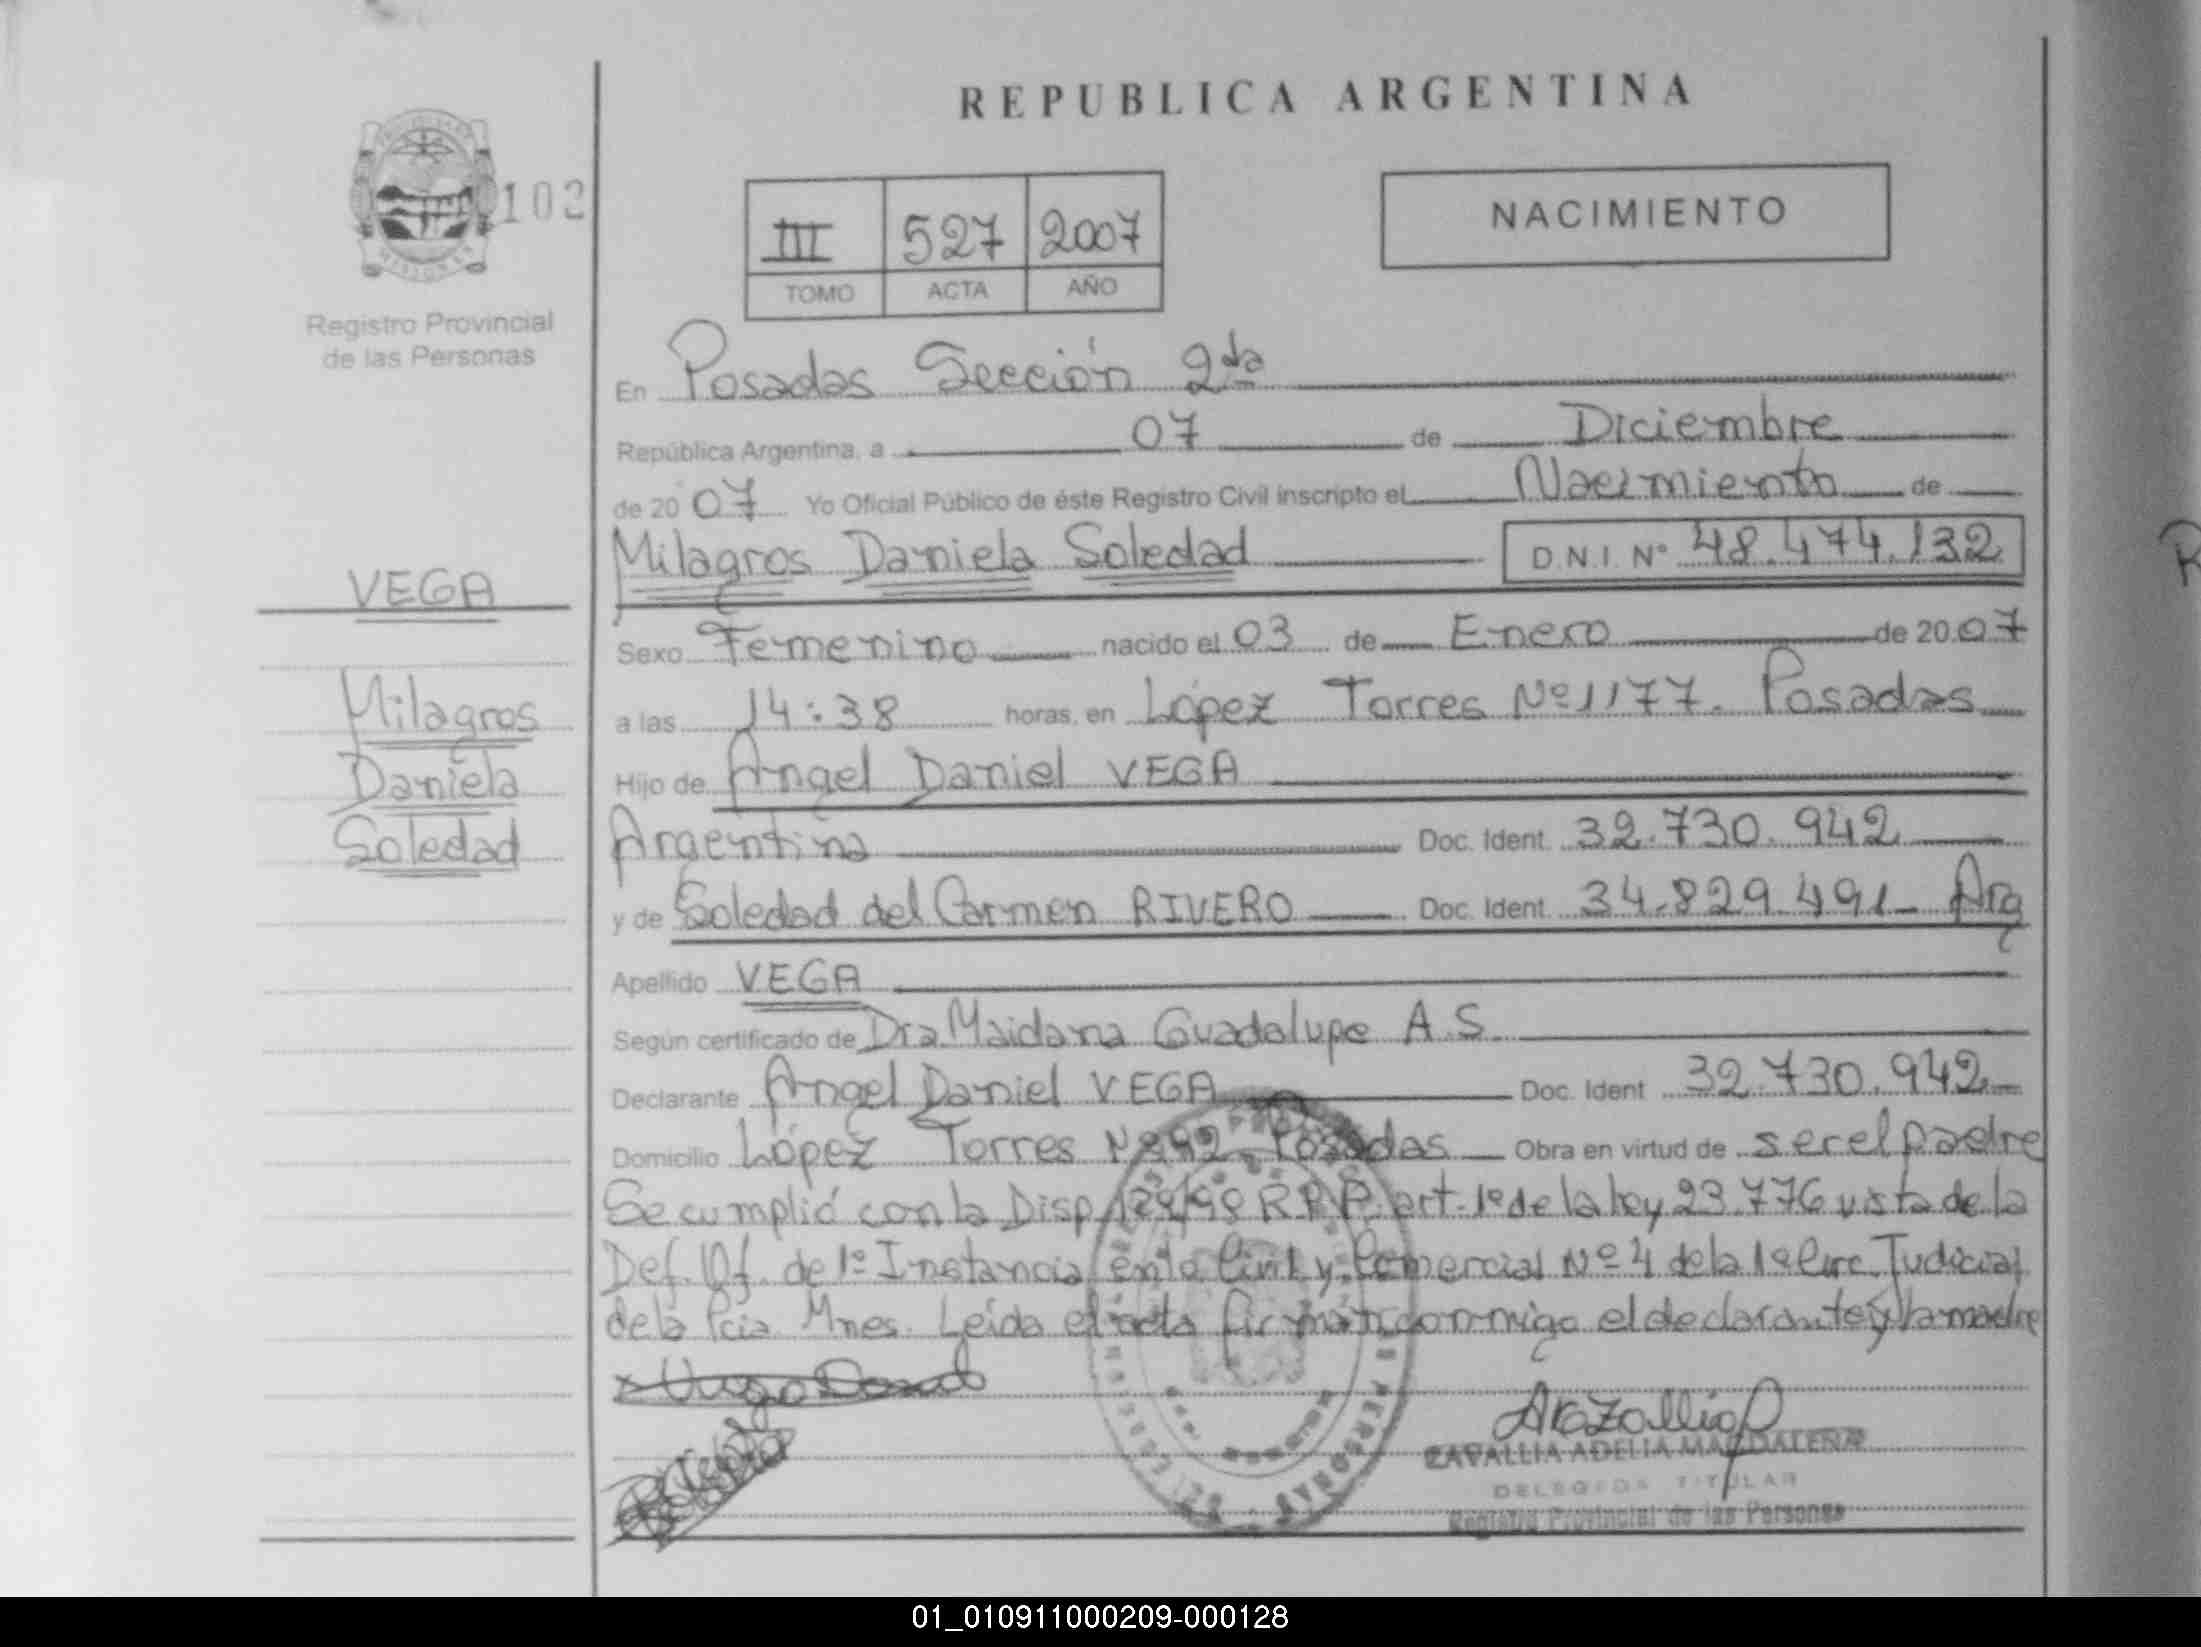 REPUBLICA ARGENTINA
102
Registro Provincial
de las Personas
III 527 2007
TOMO ACTA AÑO
NACIMIENTO
En Posadas Sección 2da
República Argentina, a 07 de Diciembre
de 2007 Yo Oficial Público de éste Registro Civil inscripto el Nacimiento de
Milagros Daniela Soledad D.N.I. Nº 48.474.132
VEGA
Milagros
Daniela
Soledad
Sexo Femenino nacido el 03 de Enero de 2007
a las 14:38 horas, en López Torres Nº 1177. Posadas
Hijo de Angel Daniel VEGA
Argentina Doc. Ident. 32.730.942
y de Soledad del Carmen RIVERO Doc. Ident. 34.829.491 Arg
Apellido VEGA
Según certificado de Dra Maidana Guadalupe A.S.
Declarante Angel Daniel VEGA Doc. Ident 32.730.942
Domicilio López Torres Posadas Obra en virtud de ser el padre
Se cumplió con la Disp. R.P.P. art. 1º de la ley 23.776 vista de la
Def. Of. de 1º Instancia en lo Civil y Comercial Nº 4 de la 1º Circ. Judicial
de la Pcia Mnes. Leída el acta firman conmigo el declarante y la madre
ZAPALLIA ADELIA MAGDALENA
DELEGADA TITULAR
Registro Provincial de las Personas
01_010911000209-000128